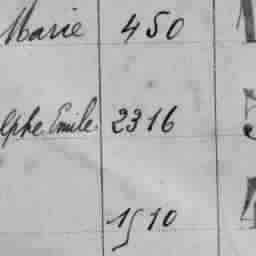 Marie 450
lphe Emile 2316
1510